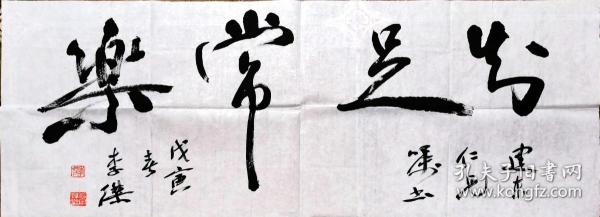 知足常樂
仁兄
囑書
戊寅
春
李傑
孔夫子旧书网
kongfz.com